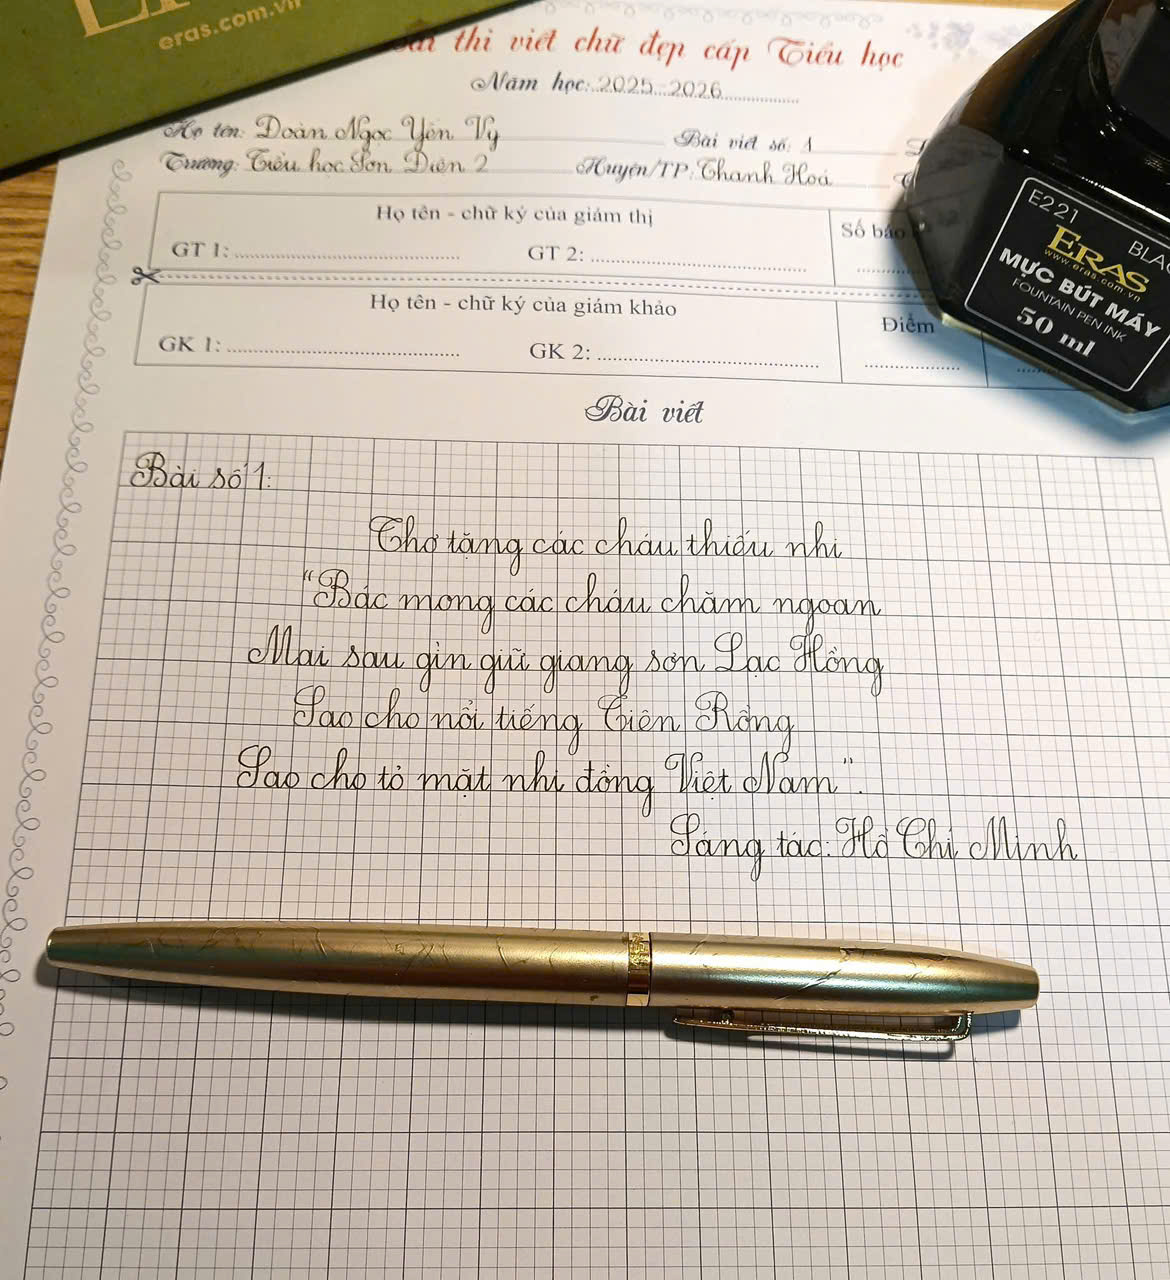 eras.com.vn
thi viết chữ đẹp cấp Tiểu học
Năm học: 2025-2026
Họ tên: Đoàn Ngọc Yến Vy Bài viết số: 1
Trường: Tiểu học Sơn Điện 2 Huyện/TP: Thanh Hoá
Họ tên - chữ ký của giám thị
Số báo
GT 1: GT 2:
Họ tên - chữ ký của giám khảo
Điểm
GK 1: GK 2:
E221 BLAC
ERAS
www.eras.com.vn
MỰC BÚT MÁY
FOUNTAIN PEN INK
50 ml
Bài viết
Bài số 1:
Thơ tặng các cháu thiếu nhi
"Bác mong các cháu chăm ngoan
Mai sau gìn giữ giang sơn Lạc Hồng
Sao cho nổi tiếng Tiên Rồng
Sao cho tỏ mặt nhi đồng Việt Nam".
Sáng tác: Hồ Chí Minh